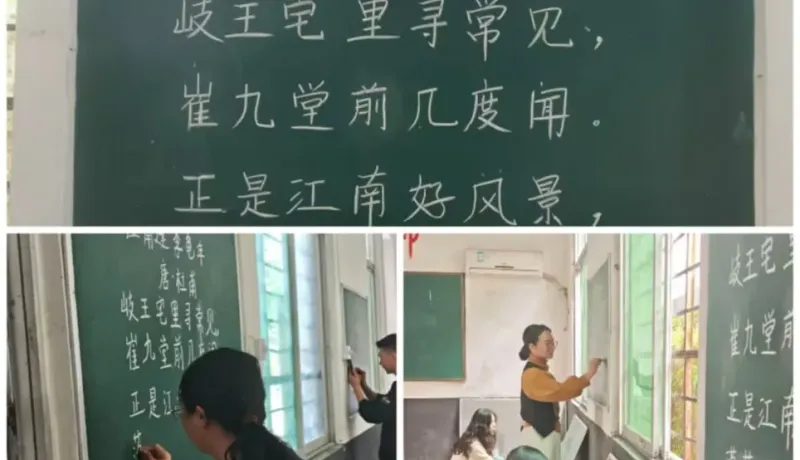 岐王宅里寻常见,
崔九堂前几度闻。
正是江南好风景,
唐·杜甫
岐王宅里寻常见
崔九堂前几
正是江
岐王宅里
崔九堂前
正是江南